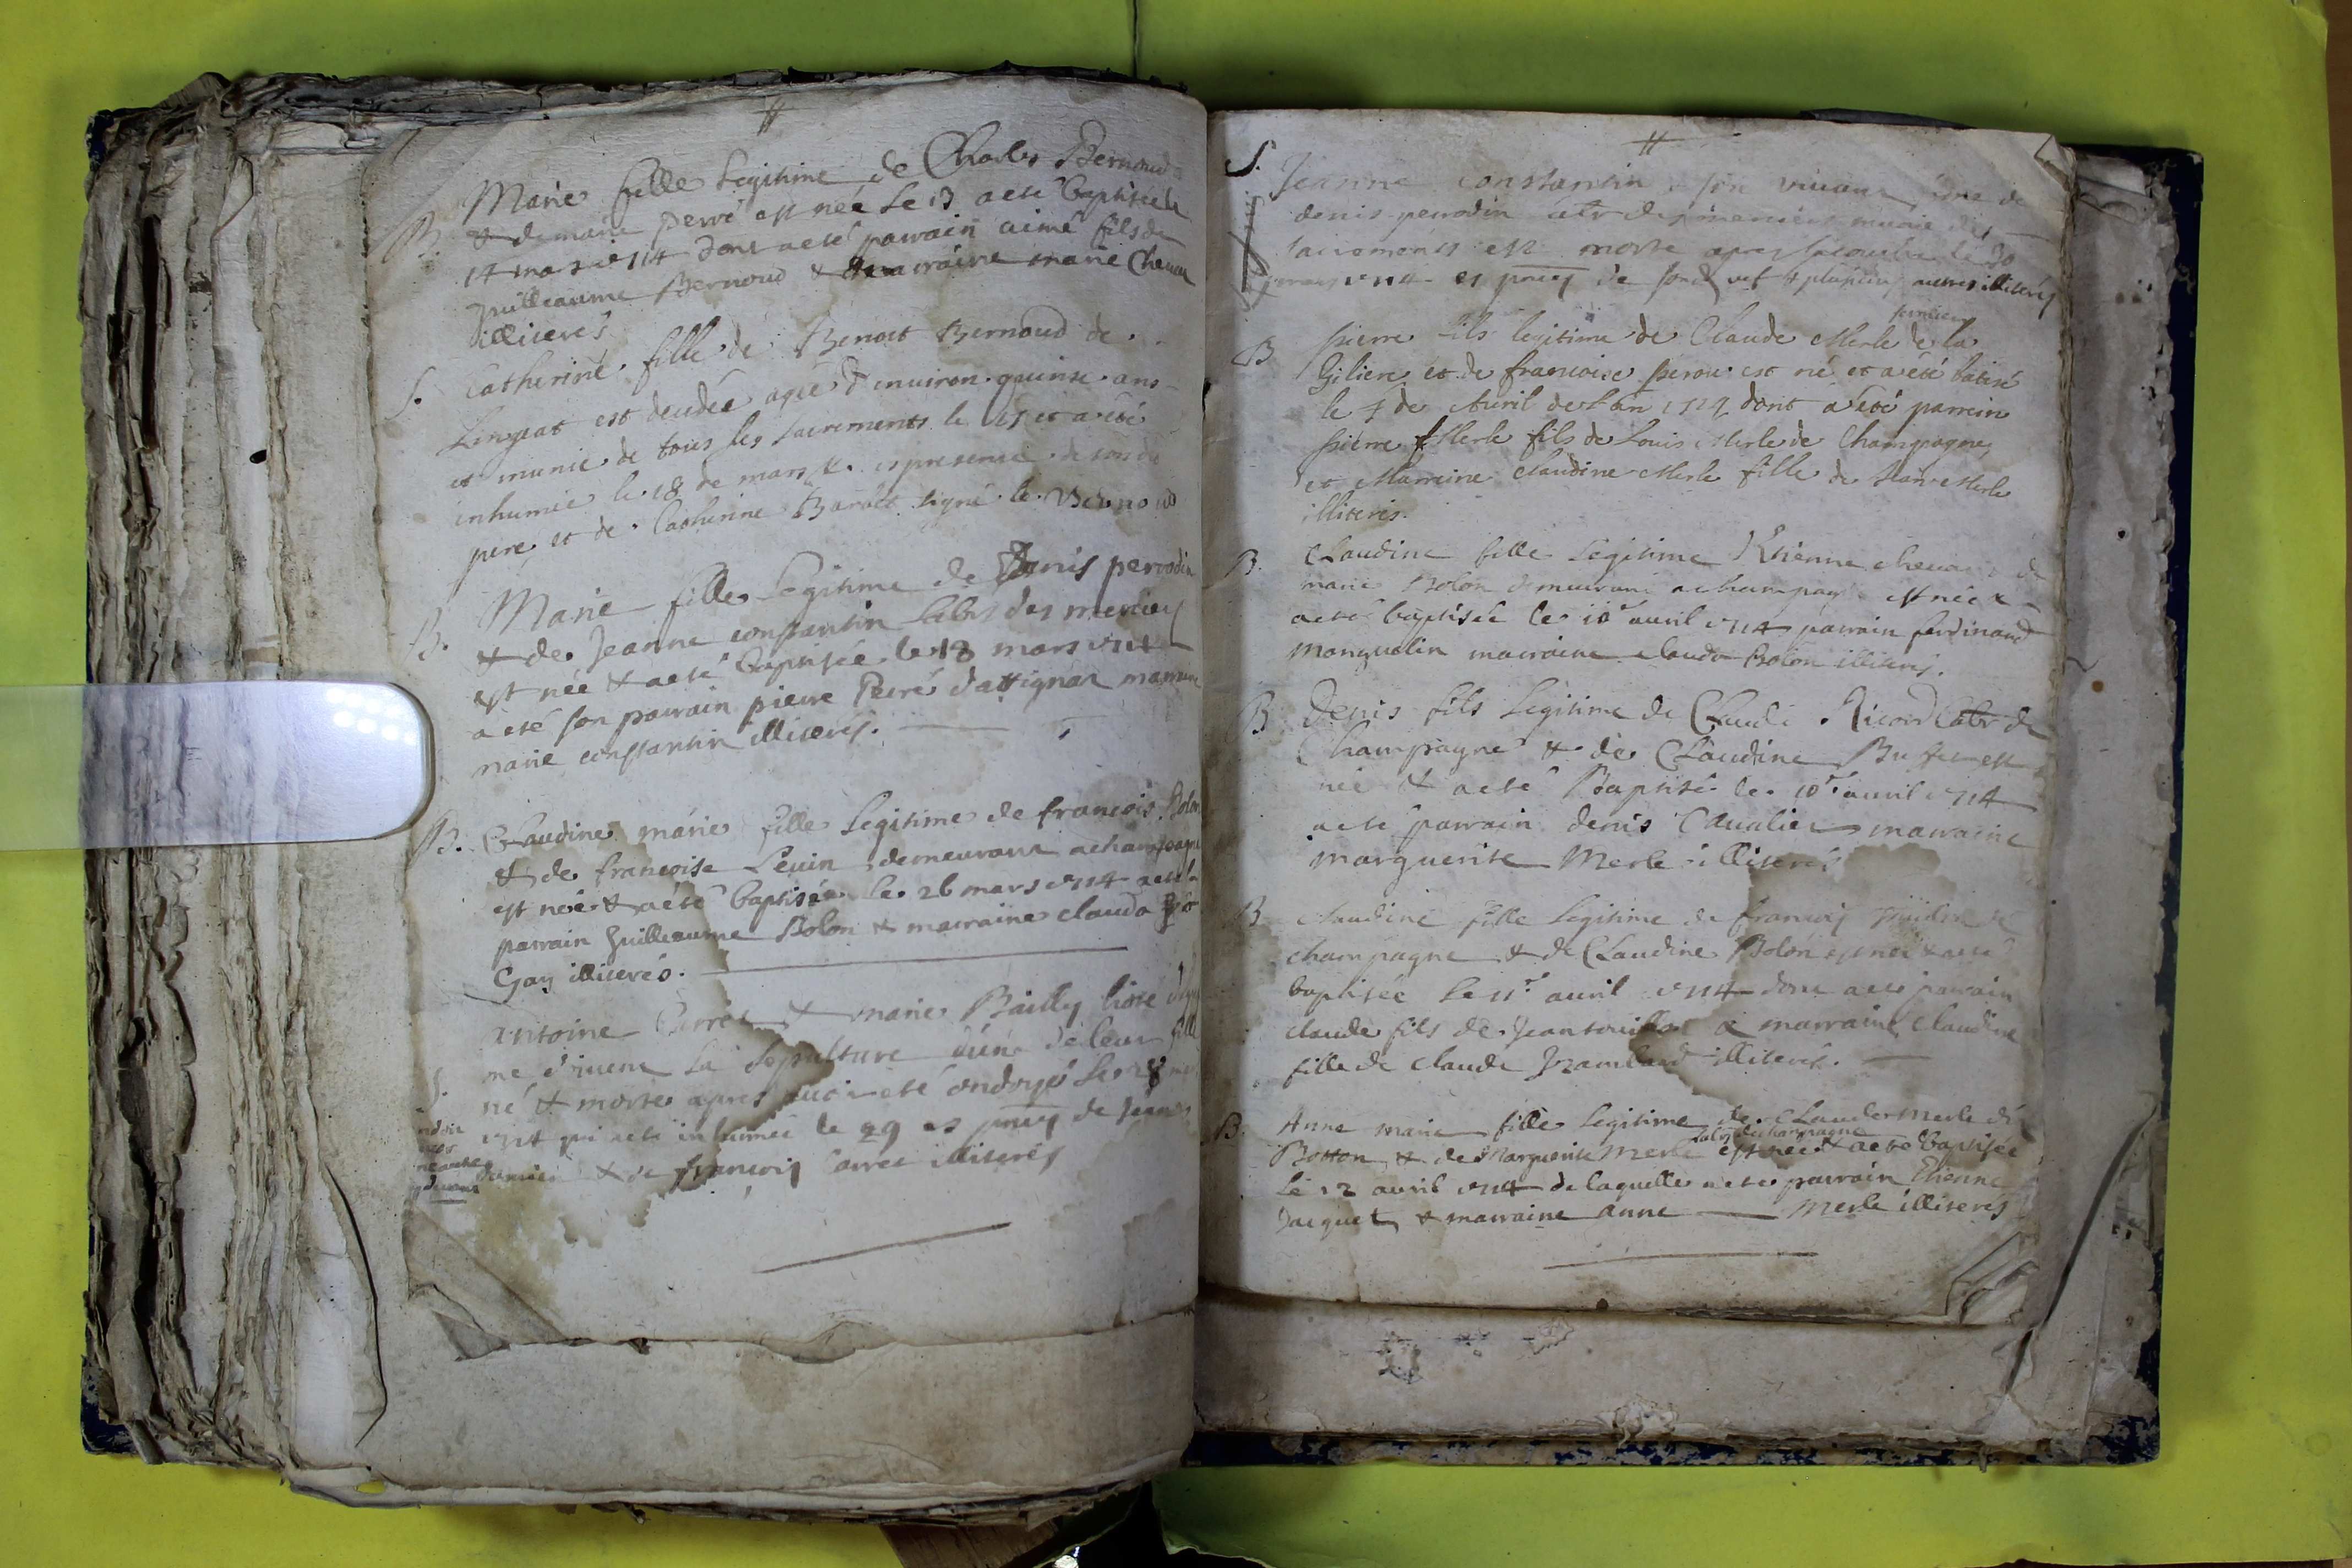 Marie fille Legitime de Charles Bernoud
B. & de marie pervé est née Le 13 a eté baptisée le
14 mars 1714 dont a eté parrain aimé fils de
Guilleaume Bernoud & marraine marie Cheva
illiteres
S. Catherine fille de Benoit Bernoud de
Lingeat est decedée agée d'environ quinse ans
et munie de tous les sacrements le 17 et a été
inhumée le 18 de mars en presence de son dit
pere et de Catherine Barbet signé le Bernoud
B. Marie fille Legitime de Denis perrodin
& de Jeanne constantin labrs des meniers
est née & a eté baptisée le 18 mars 1714
a eté son parrain pierre Perré d'attignat marraine
marie constantin illiterés.
B. Claudine marie fille Legitime de francois Bolon
& de francoise Levin demeurant a champagne
est née & a eté baptisée le 26 mars 1714 a eté
parrain Guilleaume Bolon & marraine clauda
Gay illiterés.
antoine Perret & marie Bailly
S. La sepulture d'une de leur fille
né & morte apres avoir eté ondoyé le 28
1714 qui a eté inhumée le 29 es pnces de Jean
& de francois illiterés
S. Jeanne constantin a son vivant feme de
denis perrodin labr des meniers munie des
sacrements est morte apres le 30
mars 1714 es pnces de & plusieurs autres illiterés
fermier
B pierre fils legitime de Claude Merle de la
Giliere et de francoise perou est né et a été batisé
le 7 de Avril de l'an 1714 dont a été parrein
pierre Merle fils de Louis Merle de Champagne,
et Marreine claudine Merle fille de Merle
illiteris.
B. Claudine fille Legitime Etienne chevat & de
marie Bolon demeurant a champag est née &
a eté baptisée le 10e avril 1714 parrain ferdinand
Manguelin marraine clauda Bolon illiterés.
B Denis fils Legitime de Claude Ricord labr de
Champagne & de Claudine Bu est
né & a eté Baptisé le 10e avril 1714
a eté parrain denis Cavalier marraine
marguerite Merle illiterés
B claudine fille Legitime de francois de
champagne & de Claudine Bolon est née & a eté
baptisée Le 11e avril 1714 dont a eté parrain
claude fils de Jean & marraine Claudine
fille de claude illiterés.
B. Anne marie fille Legitime de Claude Merle di
labr de champagne
Botton & de Marguerite Merle est née & a eté baptisée
Le 12 avril 1714 de laquelle a eté parrain Etienne
Jacquet & marraine anne Merle illiterés